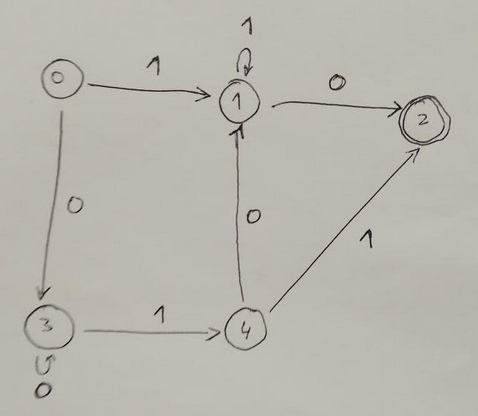 1
0 1 1 0 2
0 0 1
3 1 4
0